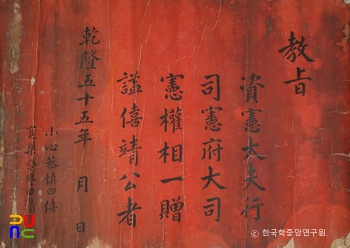 教旨
資憲大夫行
司憲府大司
憲權相一贈
諡僖靖公者
乾隆五十五年 月 日
小心恭慎曰僖
寬樂令終曰靖
© 한국학중앙연구원